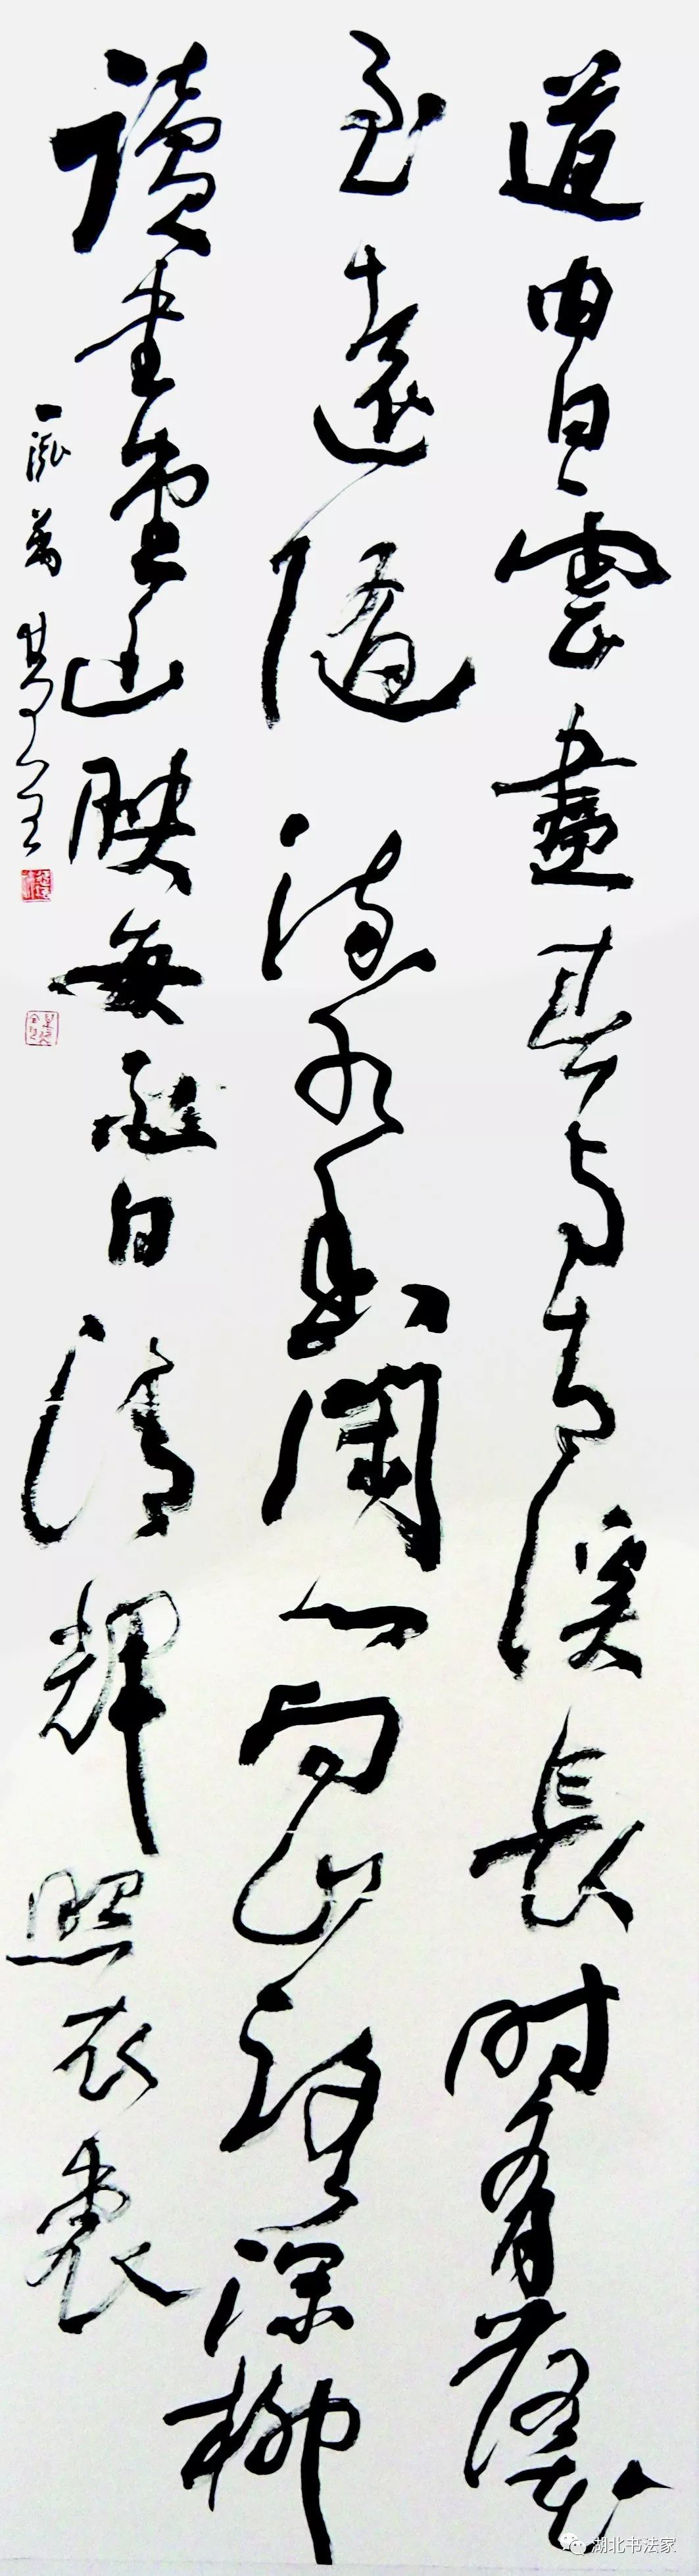 道由白雲盡春與青溪長時有落花
至遠隨流水香閑門向山路深柳
讀書堂幽映每日清輝照衣裳
湖北书法家